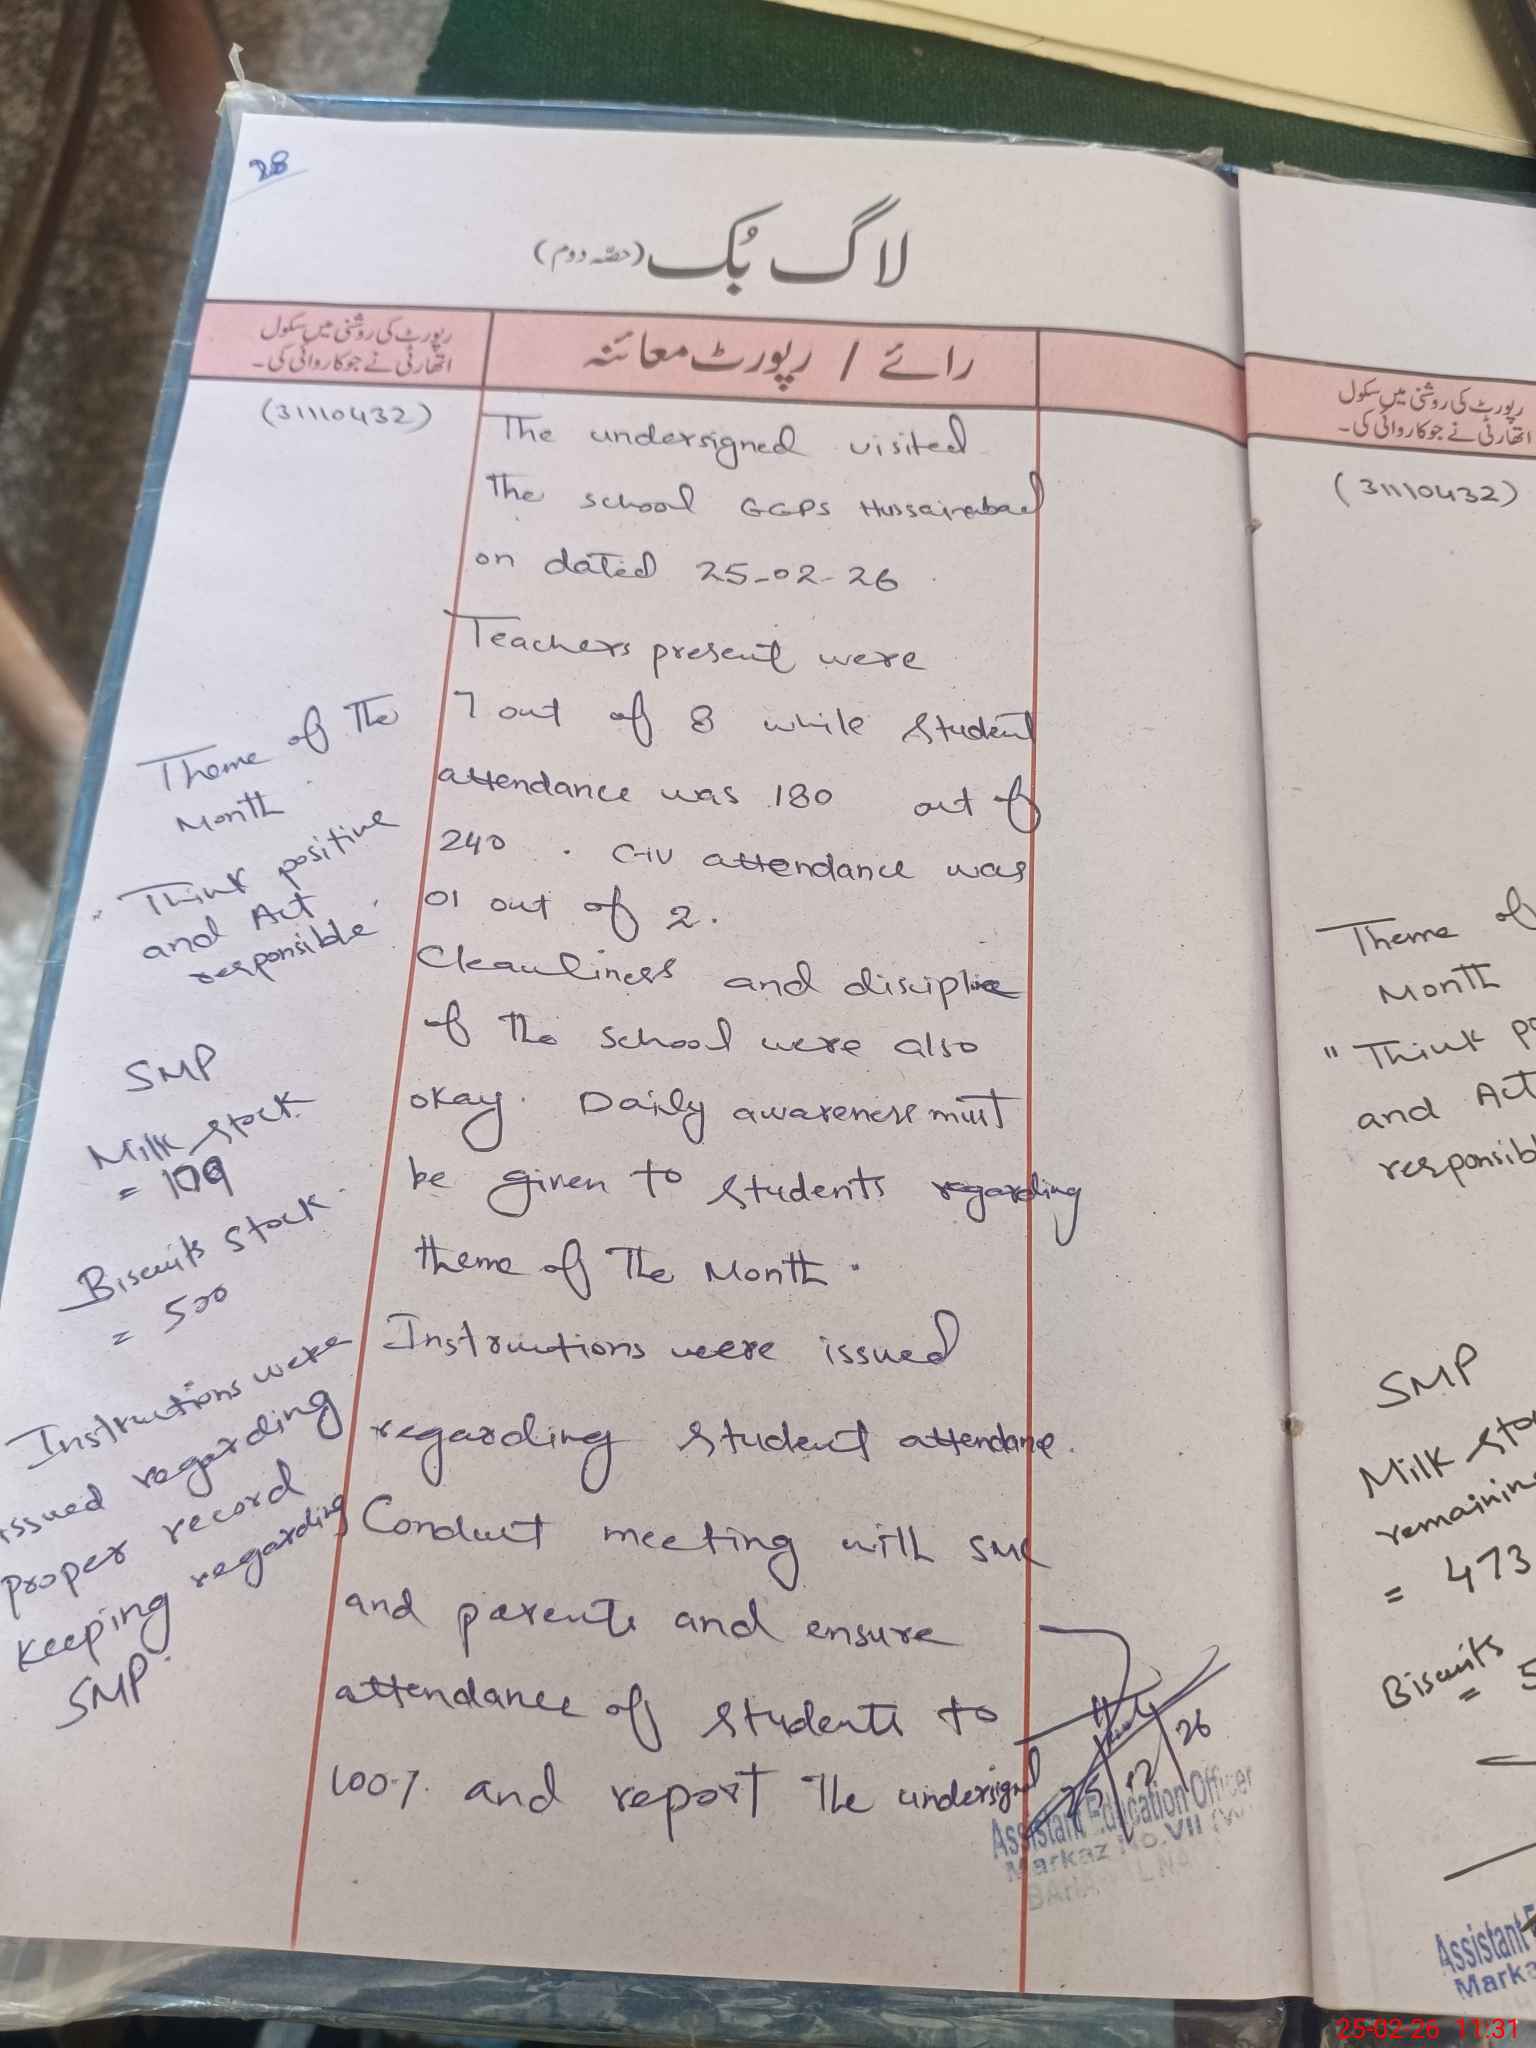 28
لاگ بُک (حصّہ دوم)
رپورٹ کی روشنی میں سکول
اتھارٹی نے جو کاروائی کی۔
رائے / رپورٹ معائنہ
(31110432)
The undersigned visited
the school GGPS Hussainabad
on dated 25-02-26
Teachers present were
7 out of 8 while student
attendance was 180 out of
240. C-IV attendance was
01 out of 2.
Cleanliness and displine
of the school were also
okay. Daily awareness must
be given to students regarding
theme of The Month.
Instructions were issued
regarding student attendance.
Conduct meeting with SMC
and parents and ensure
attendance of students to
100% and report the undersigned
25/02/26
Assistant Education Officer
Markaz No.VII (W
Theme of The
Month
"Think positive
and Act
responsible"
SMP
Milk stock
= 109
Biscuits stock
= 500
Instructions were
issued regarding
proper record
keeping regarding
SMP.
رپورٹ کی روشنی میں سکول
اتھارٹی نے جو کاروائی کی۔
(31110432)
Theme of
Month
"Think po
and Act
responsib
SMP
Milk sto
remainin
= 473
Biscuits
= 5
Assistant E
Marka
25-02-26 11:31